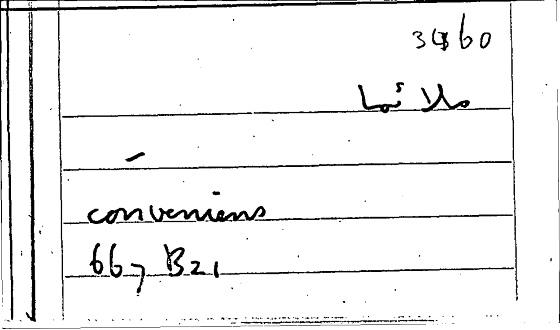 ملائما
conveniens
667 B21